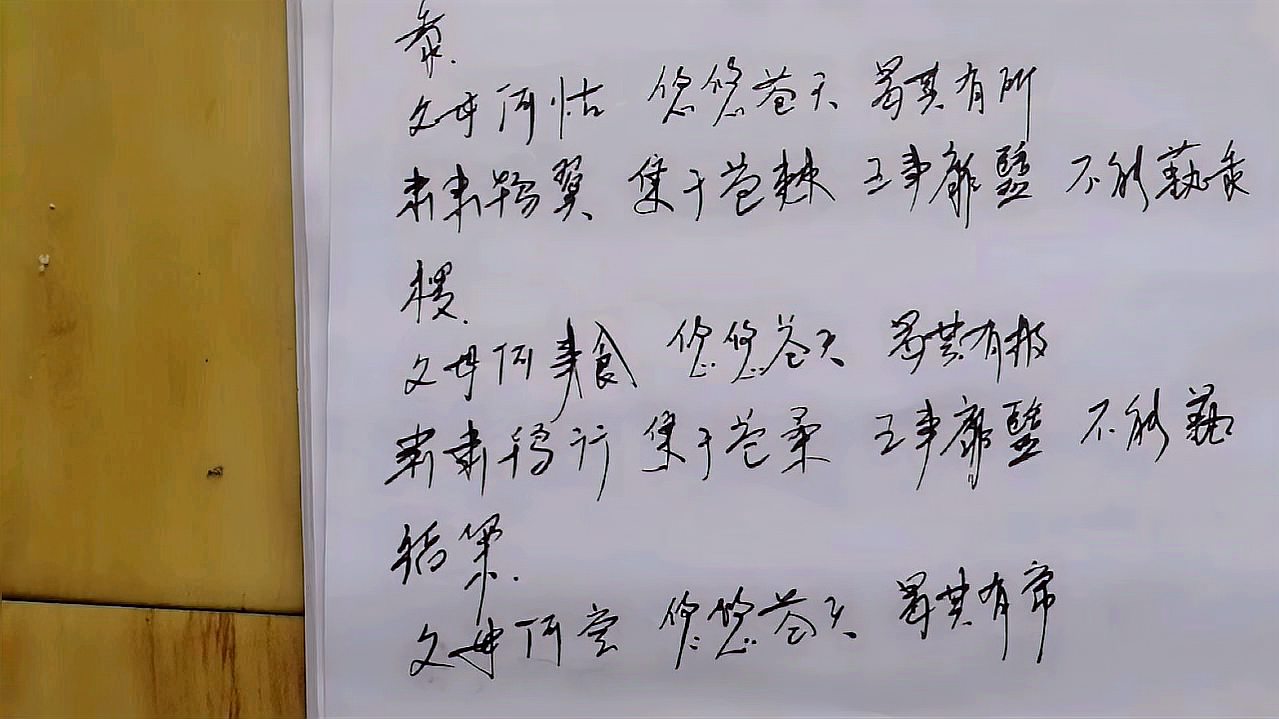 黍.
父母何怙 悠悠苍天 曷其有所
肃肃鸨翼 集于苞棘 王事靡盬 不能蓺黍
稷.
父母何食 悠悠苍天 曷其有极
肃肃鸨行 集于苞桑 王事靡盬 不能蓺
稻粱.
父母何尝 悠悠苍天 曷其有常